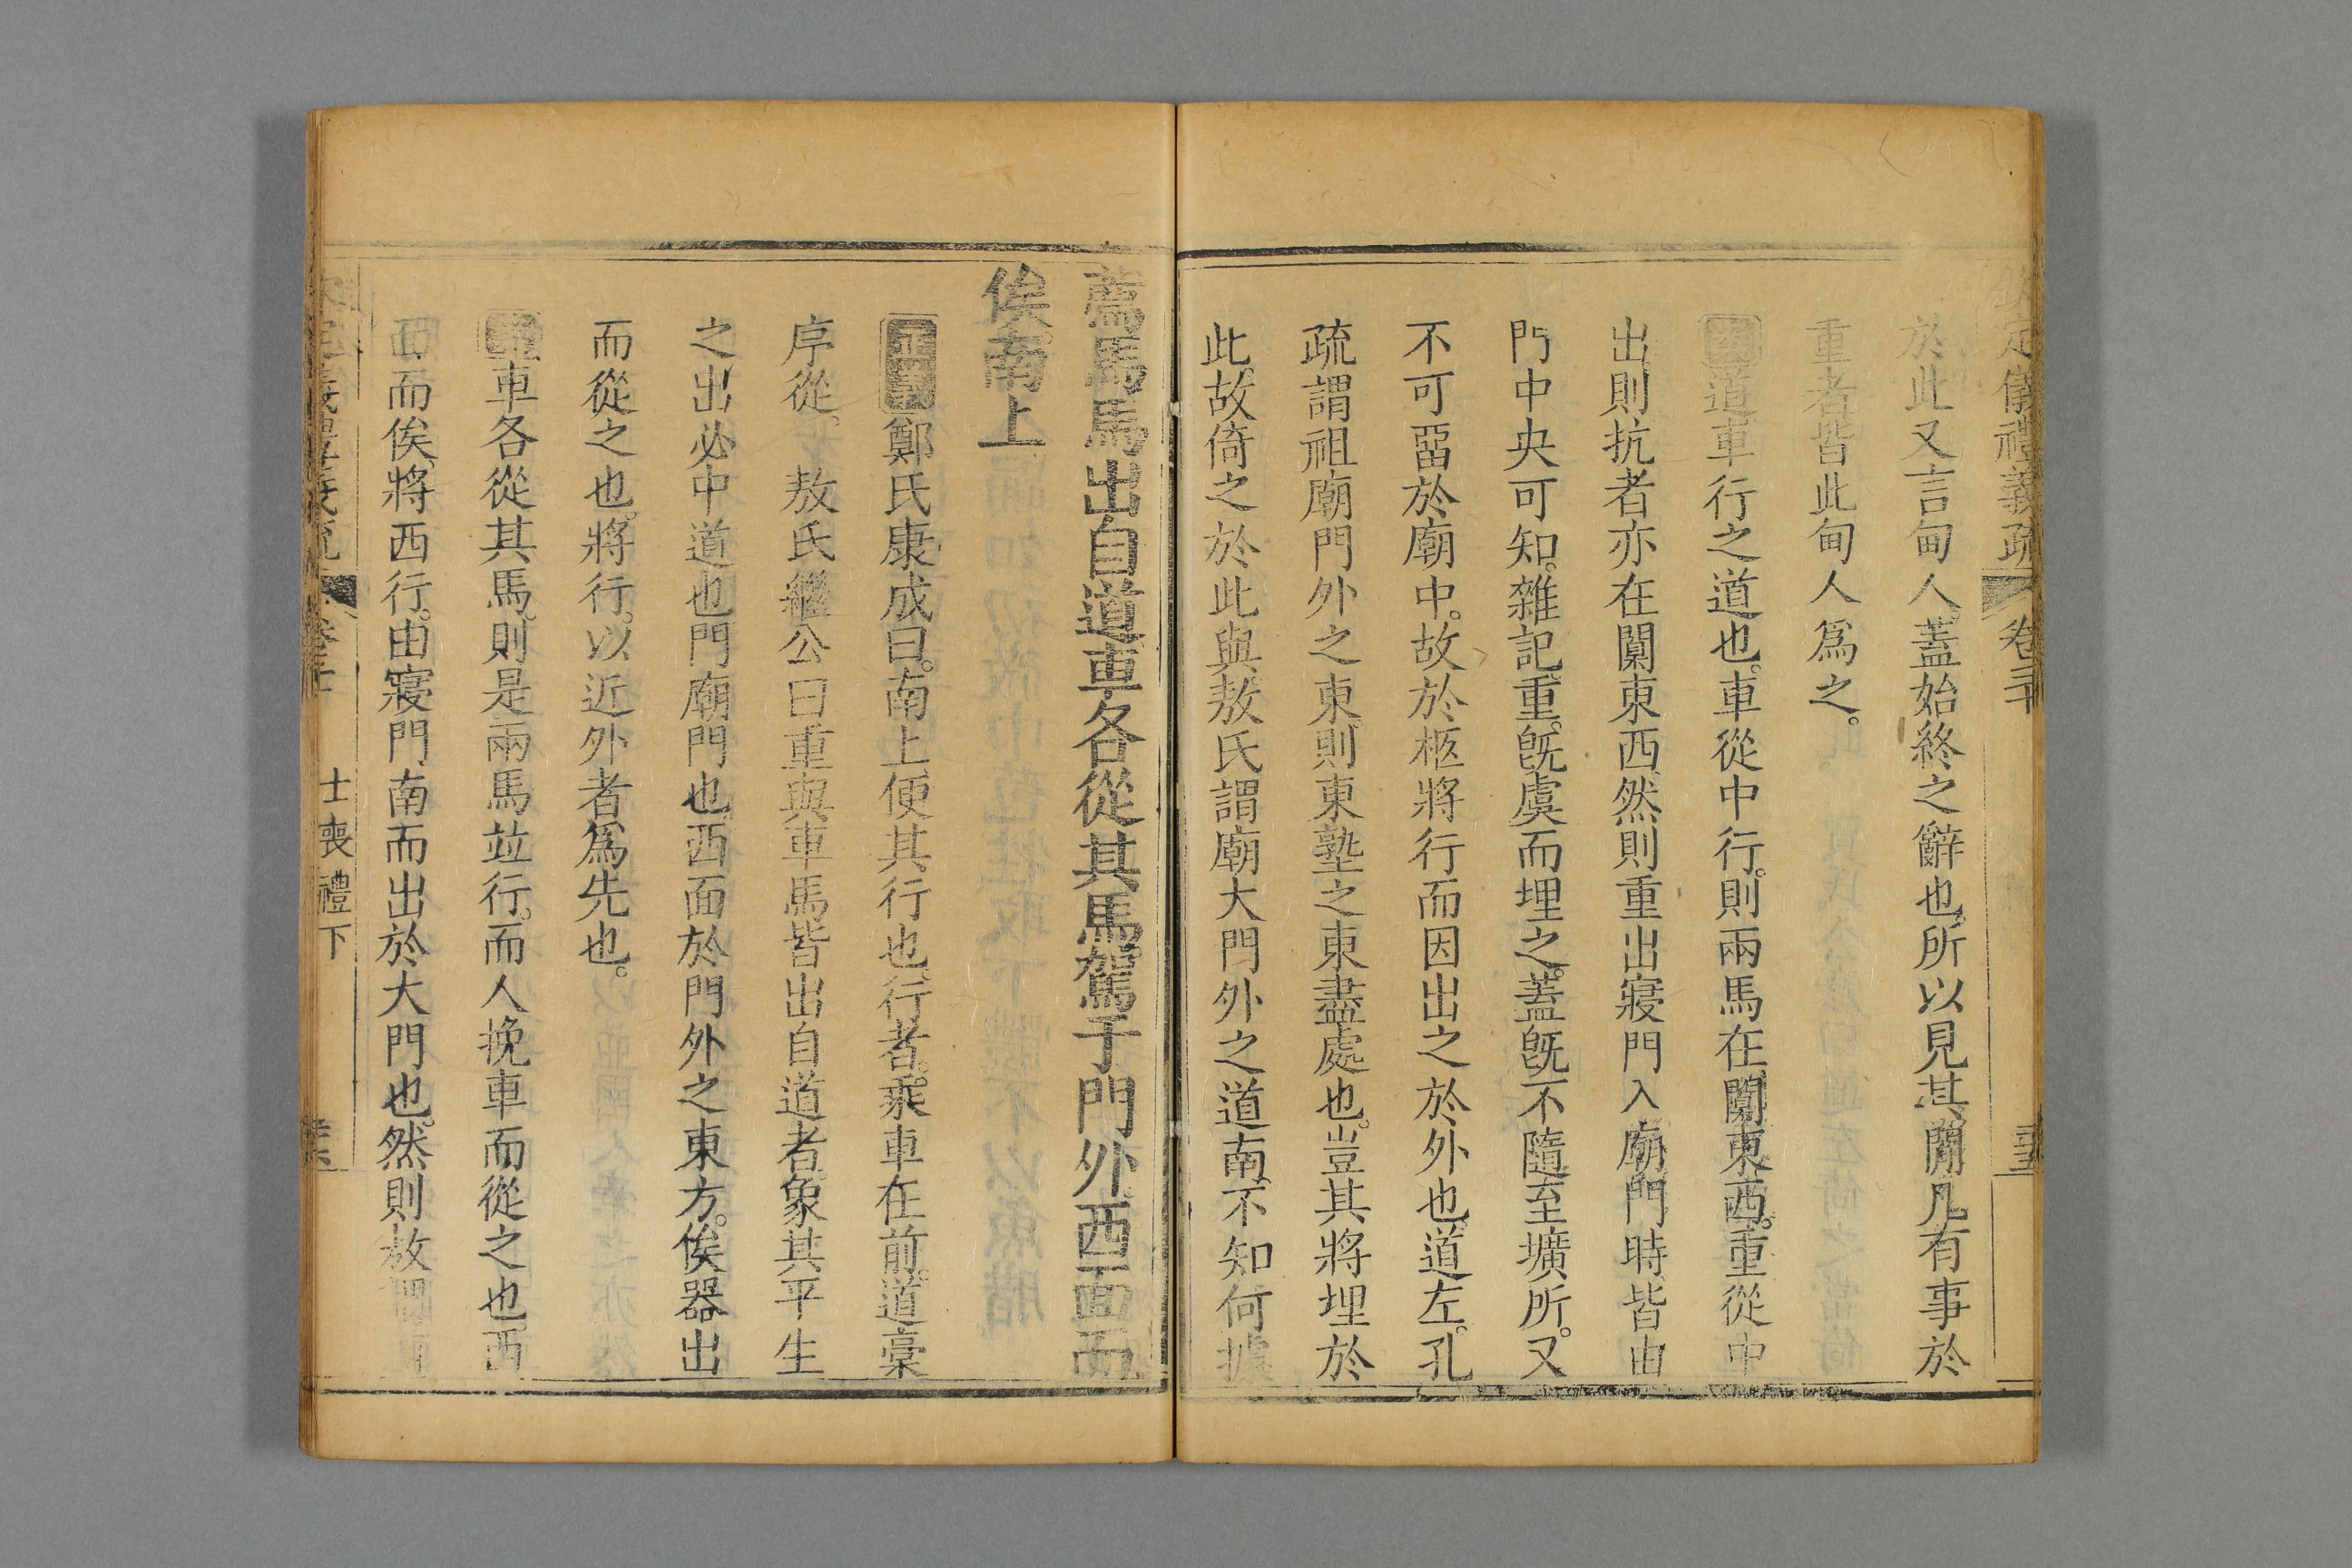 定儀禮義疏 卷三十
於此又言甸人蓋始終之辭也所以見其閒凡有事於
重者皆此甸人爲之。
道車行之道也。車從中行。則兩馬在闑東西。重從中
出則抗者亦在闑東西然則重出寢門入廟門時皆由
門中央可知。雜記重。旣虞而埋之。蓋旣不隨至壙所。又
不可畱於廟中。故於柩將行而因出之於外也道左。孔
疏謂祖廟門外之東則東塾之東盡處也。豈其將埋於
此故倚之於此與敖氏謂廟大門外之道南不知何據
薦馬馬出自道車各從其馬駕于門外西面而
俟南上
正義鄭氏康成曰。南上便其行也。行者。乘車在前。道槀
序從。 敖氏繼公曰重與車馬皆出自道者象其平生
之出必中道也門廟門也西面於門外之東方。俟器出
而從之也。將行。以近外者爲先也。
車各從其馬。則是兩馬竝行。而人挽車而從之也。西
面而俟。將西行。由寢門南而出於大門也。然則敖
士喪禮下